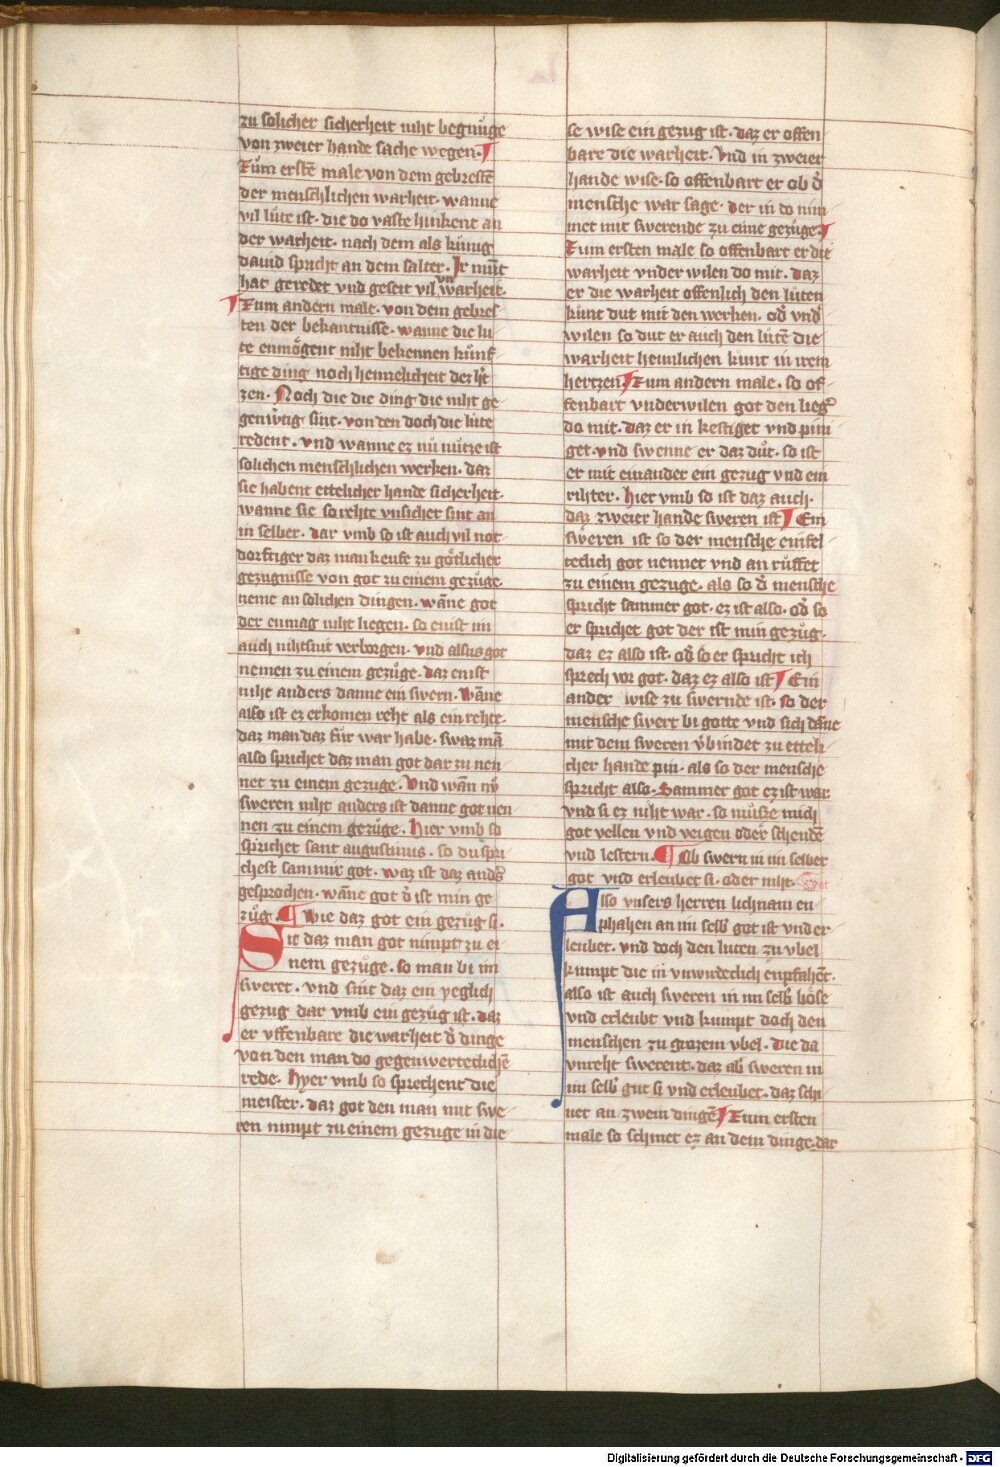 zu solicher sicherheit niht begnuͤge
von zweier hande sache wegen·
Zum erstē male von dem gebrestē
der menschlichen warheit· wanne
vil luͤte ist· die do vaste hinkent an
der warheit· nach dem als kuͤnig
dauid spricht an dem salter· Ir mūt
hat geredet vnd geseit vil vnwarheit·
Zum andern male· von dem gebres-
ten der bekantnisse· wanne die lu-
te enmoͤgent niht bekennen kuͤnf-
tige ding noch heimelicheit dez h̓t-
zen· Noch die die ding die niht ge-
genw̓tig sint· von den doch die luͤte
redent· vnd wanne ez nuͦ nuͤtze ist
solichen menschlichen werken· daz
sie habent ettelicher hande sicherheit·
wanne sie so rehte vnsicher sint an
in selber· dar vmb so ist auch vil not-
dorftiger daz man keufe zu goͤtlicher
gezugnisse von got zu einem gezuͤge
neme an solichen dingen· wāne got
der enmag niht liegen· so enist im
auch nihtsnit verborgen· vnd alsus got
nemen zu einem gezuͤge· daz enist
niht anders danne ein swern· Wāne
also ist ez erkomen reht als ein rehte·
daz man daz fuͤr war habe· swaz mā
also sprichet daz man got dar zu nen-
net zu einem gezuge· Vnd wān nv̓
sweren niht anders ist danne got nen-
nen zu einem gezuͤge· Hier vmb so
sprichet sant augustinus· so du spri-
chest sammir got· waz ist daz and̓s
gesprochen· wāne got d̓ ist min ge-
zuͤg· ¶ Wie daz got ein gezuͤg si·
Sit daz man got nimpt zu ei-
nem gezuͤge· so man bi im
sweret· vnd sint daz ein yeglich
gezug dar vmb ein gezuͤg ist· daz
er vffenbare die warheit d̓ dinge
von den man do gegenwerteclichē
rede· Hyer vmb so sprechent die
meister· daz got den man mit swe-
ren nimpt zu einem gezuge in die
se wise ein gezug ist· daz er offen
bare die warheit· Vnd in zweier
hande wise· so offenbart er ob d̓
mensche war sage· der in do nim-
met mit swerende zu eime gezuͤge·
Zum ersten male so offenbart er die
warheit vnder wilen do mit· daz
er die warheit offenlich den luͤten
kuͤnt dut mit den werken· od̓ vnd̓
wilen so dut er auch den lutē die
warheit heimlichen kuͤnt in irem
hertzen· Zum andern male· so of-
fenbart vnderwilen got den lieg̓
do mit· daz er in kestiget vnd pini-
get· vnd swenne er daz duͦt· so ist
er mit einander ein gezug vnd ein
rihter· Hier vmb so ist daz auch·
daz zweier hande sweren ist Ein
sweren ist so der mensche einfel-
teclich got nennet vnd an ruͤffet
zu einem gezuge· als so d̓ mensche
spricht sammer got· ez ist also· od̓ so
er sprichet got der ist min gezuͤg·
daz ez also ist· od̓ so er spricht ich
sprech vor got· daz ez also ist Ein
ander wise zu swernde ist· so der
mensche swert bi gotte vnd sich dāne
mit dem sweren v̓bindet zu etteli-
cher hande pin· als so der mensche
spricht also· Sammer got ez ist war
vnd si ez niht war· so muͤsze mich
got vellen vnd veigen oder schendē
vnd lestern· ¶ Ob swern in im selber
got vnd erleubet si· oder niht·
Also vnsers herren lichnam en-
phahen an im selb̓ got ist vnd er-
leubet· vnd doch den luten zu vbel
kumpt die in vnwirdeclich enpfahēt·
also ist auch sweren in im selb̓ boͤse
vnd erleubt vnd kumpt doch den
menschen zu grozem vbel· die da
vnreht swerent· daz ab̓ sweren in
im selb̓ gut si vnd erleubet· daz schi-
net an zwein dingē Zum ersten
male so schinet ez an dem dinge· dar
Digitalisierung gefördert durch die Deutsche Forschungsgemeinschaft - DFG